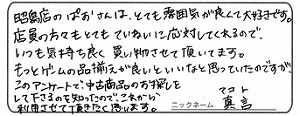 昭島店のぱおさんは、とても雰囲気が良くて大好きです。
店員の方々もとてもていねいに応対してくれるので、
いつも気持ち良く買い物させて頂いてます。
もっとゲームの品揃えが良いといいなと思っていたのですが、
このアンケートで、中古商品のお探しを
して下さるのを知ったので、これから
利用させて頂きたく思います。
ニックネーム マコト
真言